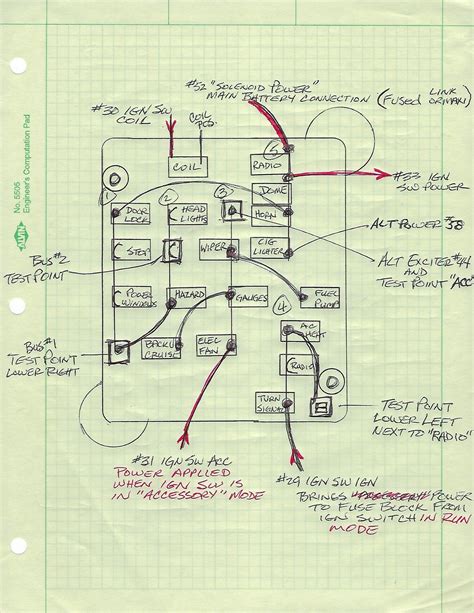 #52 "SOLENOID POWER"
MAIN BATTERY CONNECTION (FUSED LINK
OR MAXI)
#30 IGN SW
COIL
COIL
POS.
COIL
5
RADIO
#33 IGN
SW POWER
DOME
1
2
3
DOOR
LOCK
HEAD
LIGHTS
HORN
ALT POWER 38
BUS #2
TEST POINT
STOP
WIPER
CIG
LIGHTER
ALT EXCITER #44
AND
TEST POINT "ACC"
POWER
WINDOWS
HAZARD
GAUGES
4
FUEL
PUMP
BUS #1
TEST POINT
LOWER RIGHT
BACKU
CRUISE
ELEC
FAN
A/C
HEAT
RADIO
TURN
SIGNAL
TEST POINT
LOWER LEFT
NEXT TO "RADIO"
#31 IGN SW ACC
POWER APPLIED
WHEN IGN SW IS
IN "ACCESSORY" MODE
#29 IGN SW IGN
BRINGS POWER
TO FUSE BLOCK FROM
IGN SWITCH IN RUN
MODE
No. 5506
Engineer's Computation Pad
ALVIN